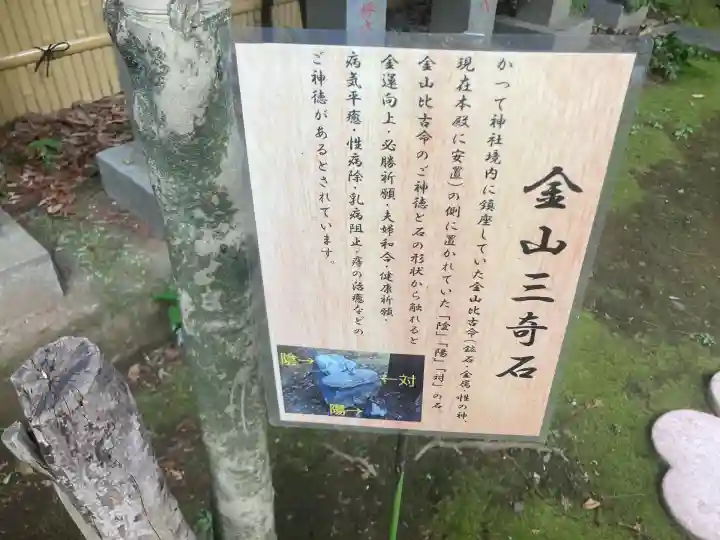 金山三奇石
かつて神社境内に鎮座していた金山比古命(鉱石・金属・性の神、
現在本殿に安置)の側に置かれていた「陰」「陽」「対」の石
金山比古命のご神徳と石の形状から触れると
金運向上・必勝祈願・夫婦和合・健康祈願・
病気平癒・性病除・乳病阻止・痔の治癒などの
ご神徳があるとされています。
陰→
←対
陽→